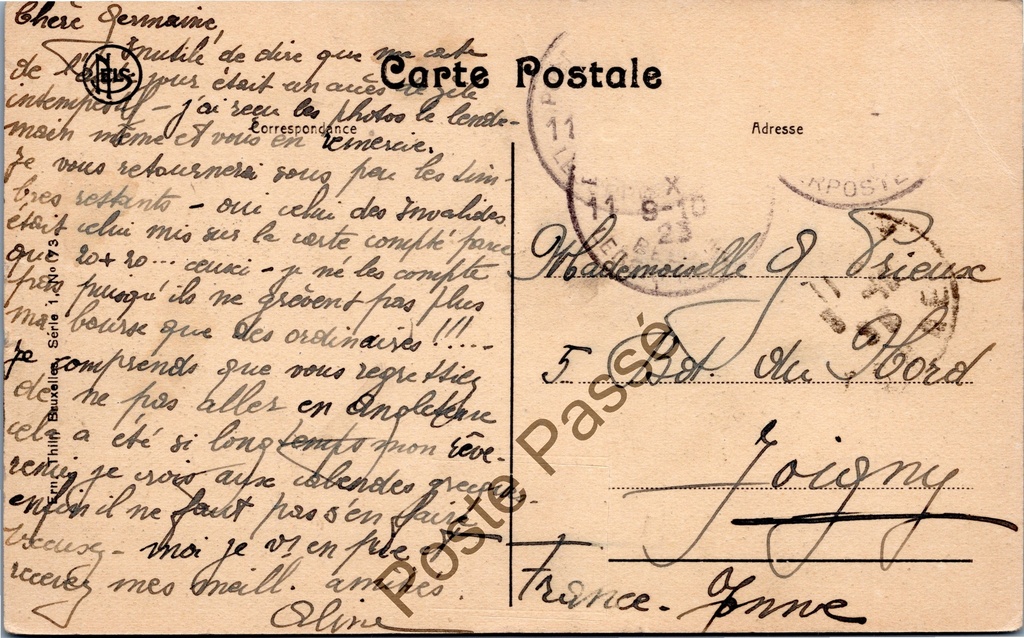 Chère Germaine,
Inutile de dire que ma carte
de l'autre jour était un accès de zèle
intempestif - j'ai reçu les photos le lende-
main même et vous en remercie.
Je vous retournerai sous peu les tim-
bres restants - oui celui des Invalides
était celui mis sur la carte compté parce
que 20+20... ceux-ci - je ne les compte
pas puisqu'ils ne grèvent pas plus
ma bourse que des ordinaires !!!.....
Je comprends que vous regrettiez
de ne pas aller en Angleterre
cela a été si longtemps mon rêve -
remis je crois aux calendes grecques -
enfin il ne faut pas s'en faire
Excusez-moi je v/ en prie et
recevez mes meill. amitiés.
Aline
NELS
Carte Postale
Correspondance
Adresse
Ern. Thill, Bruxelles, Série 1, No 73
11 X
11 9-10
23
RPOSTE
Mademoiselle G Prieux
5 Bd. du Nord
Joigny
France. Yonne
Poste Passé